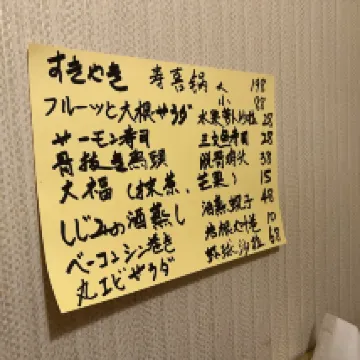 すきやき 寿喜锅 大 198
小 88
フルーツと大根サラダ 水果萝卜沙拉 28
サーモン寿司 三文鱼寿司 28
骨抜き魚頭 脱骨鱼头 38
大福(抹茶、芒果) 15
しじみの酒蒸し 酒蒸蚬子 48
ベーコンシン巻き 培根火针卷 10
丸エビサラダ 虾球沙拉 68